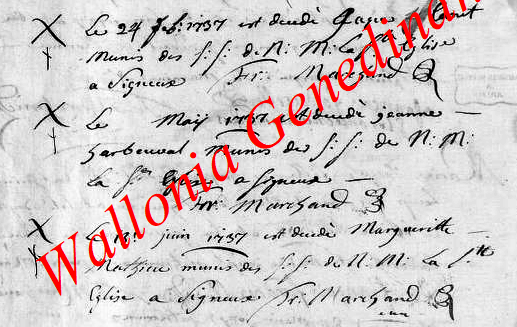 Le 24 feb: 1737 est decedé
munis des S: S: de N: M: la Ste Eglise
a Signeux Fr: Marchand
Le Maij 1737 est decedé jeanne
harbeuval munis des S: S: de N: M:
la Ste Eglise a Signeux
Fr: Marchand
Le 13e juin 1737 est decedé Margueritte
Mathieu munis des S: S: de N: M: la Ste
Eglise a Signeux Fr: Marchand
Wallonia Genedinan